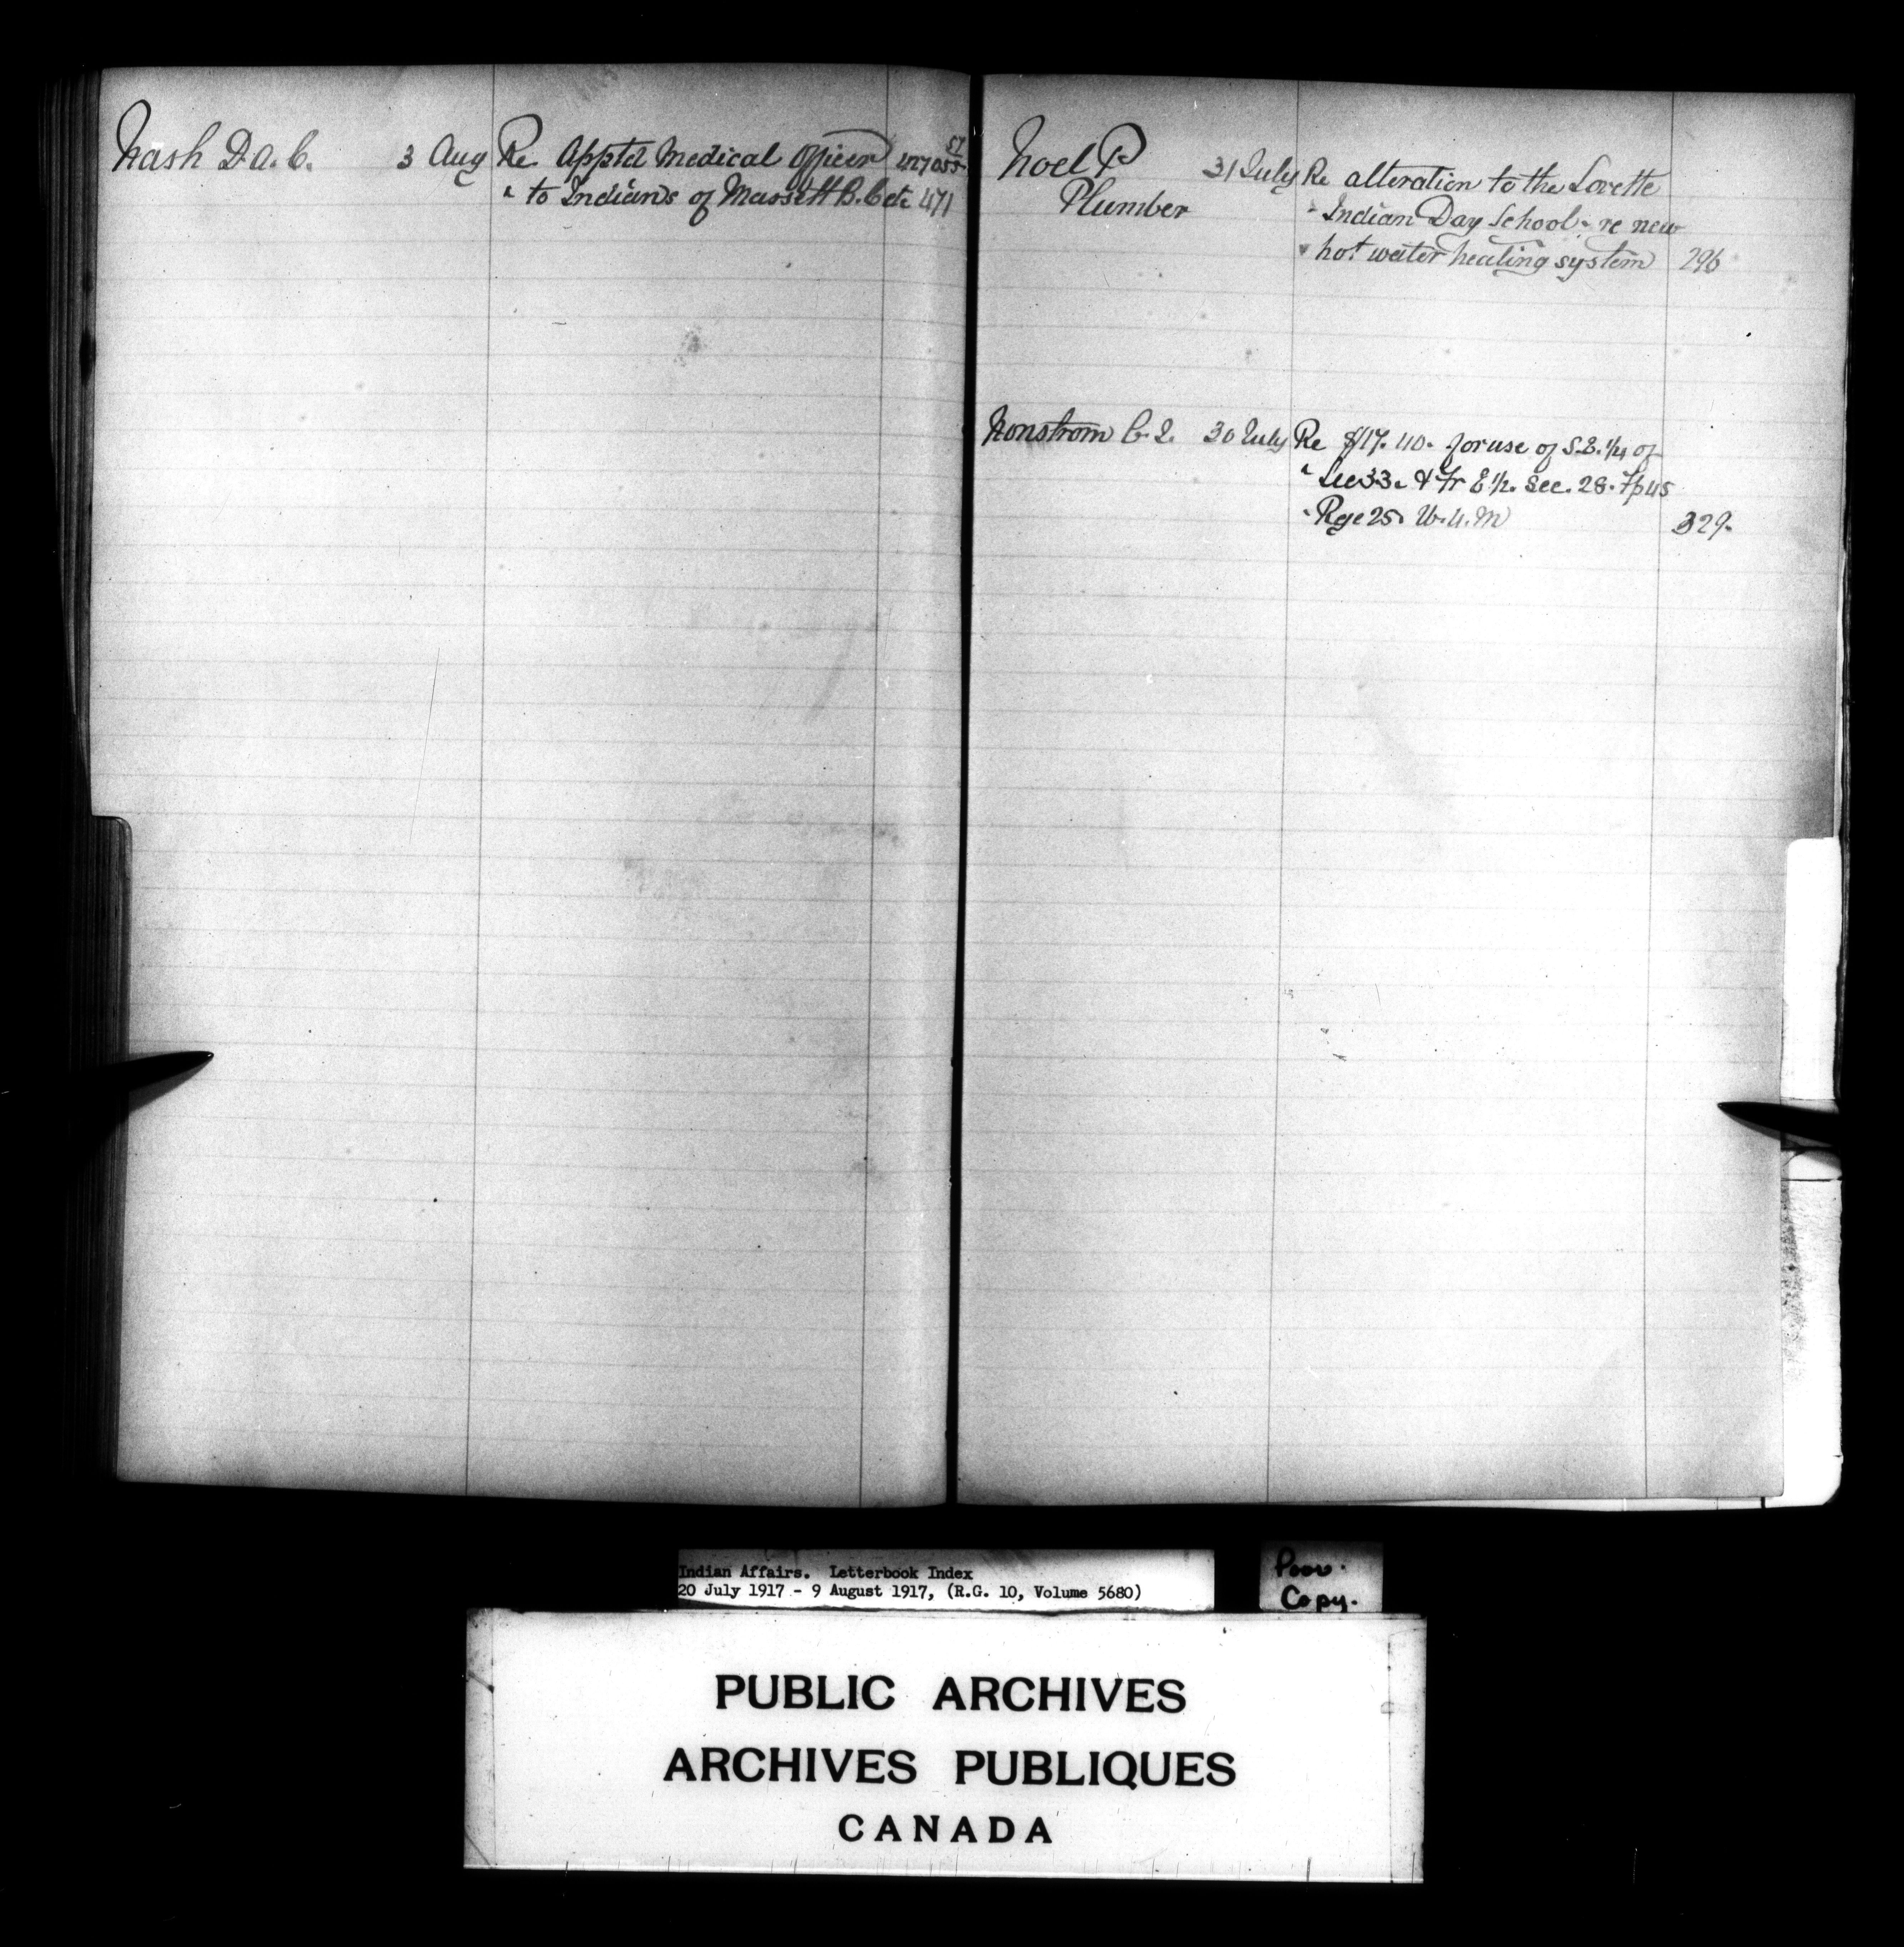 Nash D. A. C. 3 Aug Re Apptd Medical Officer
" to Indians of Massett B.C. etc 471
Noel P 31 July Re alteration to the Lorette
Plumber " Indian Day School - re new
" hot water heating system 296
Nonstrom C. L. 30 July Re $17.40. for use of S.E. 1/4 of
" Sec 33. & Fr E 1/2. Sec. 28. Tp 45
" Rge 25. W. 4. M 329.
Indian Affairs. Letterbook Index
20 July 1917 - 9 August 1917, (R.G. 10, Volume 5680)
Poor.
Copy.
PUBLIC ARCHIVES
ARCHIVES PUBLIQUES
CANADA